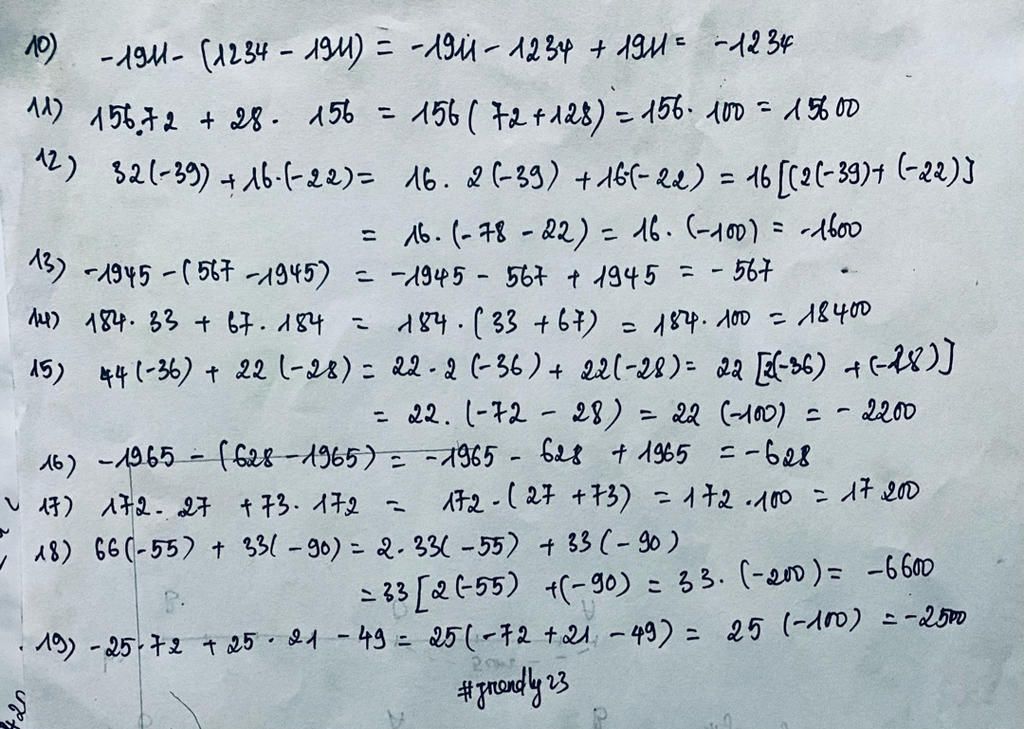 10) -1911 - (1234 - 1911) = -1911 - 1234 + 1911 = -1234
11) 156.72 + 28. 156 = 156( 72+128) = 156. 100 = 15600
12) 32(-39) + 16.(-22) = 16. 2(-39) + 16(-22) = 16[(2(-39)+ (-22)]
= 16.(-78 - 22) = 16. (-100) = -1600
13) -1945 - (567 - 1945) = -1945 - 567 + 1945 = -567
14) 184. 33 + 67. 184 = 184. (33 + 67) = 184. 100 = 18400
15) 44(-36) + 22(-28) = 22. 2(-36) + 22(-28) = 22 [2(-36) + (-28)]
= 22. (-72 - 28) = 22 (-100) = -2200
16) -1965 - (628 - 1965) = -1965 - 628 + 1965 = -628
17) 172. 27 + 73. 172 = 172. (27 + 73) = 172 .100 = 17 200
18) 66(-55) + 33(-90) = 2. 33(-55) + 33(-90)
= 33 [2(-55) +(-90) = 33. (-200) = -6600
19) -25.72 + 25 . 21 - 49 = 25(-72 + 21 - 49) = 25 (-100) = -2500
#friendly23